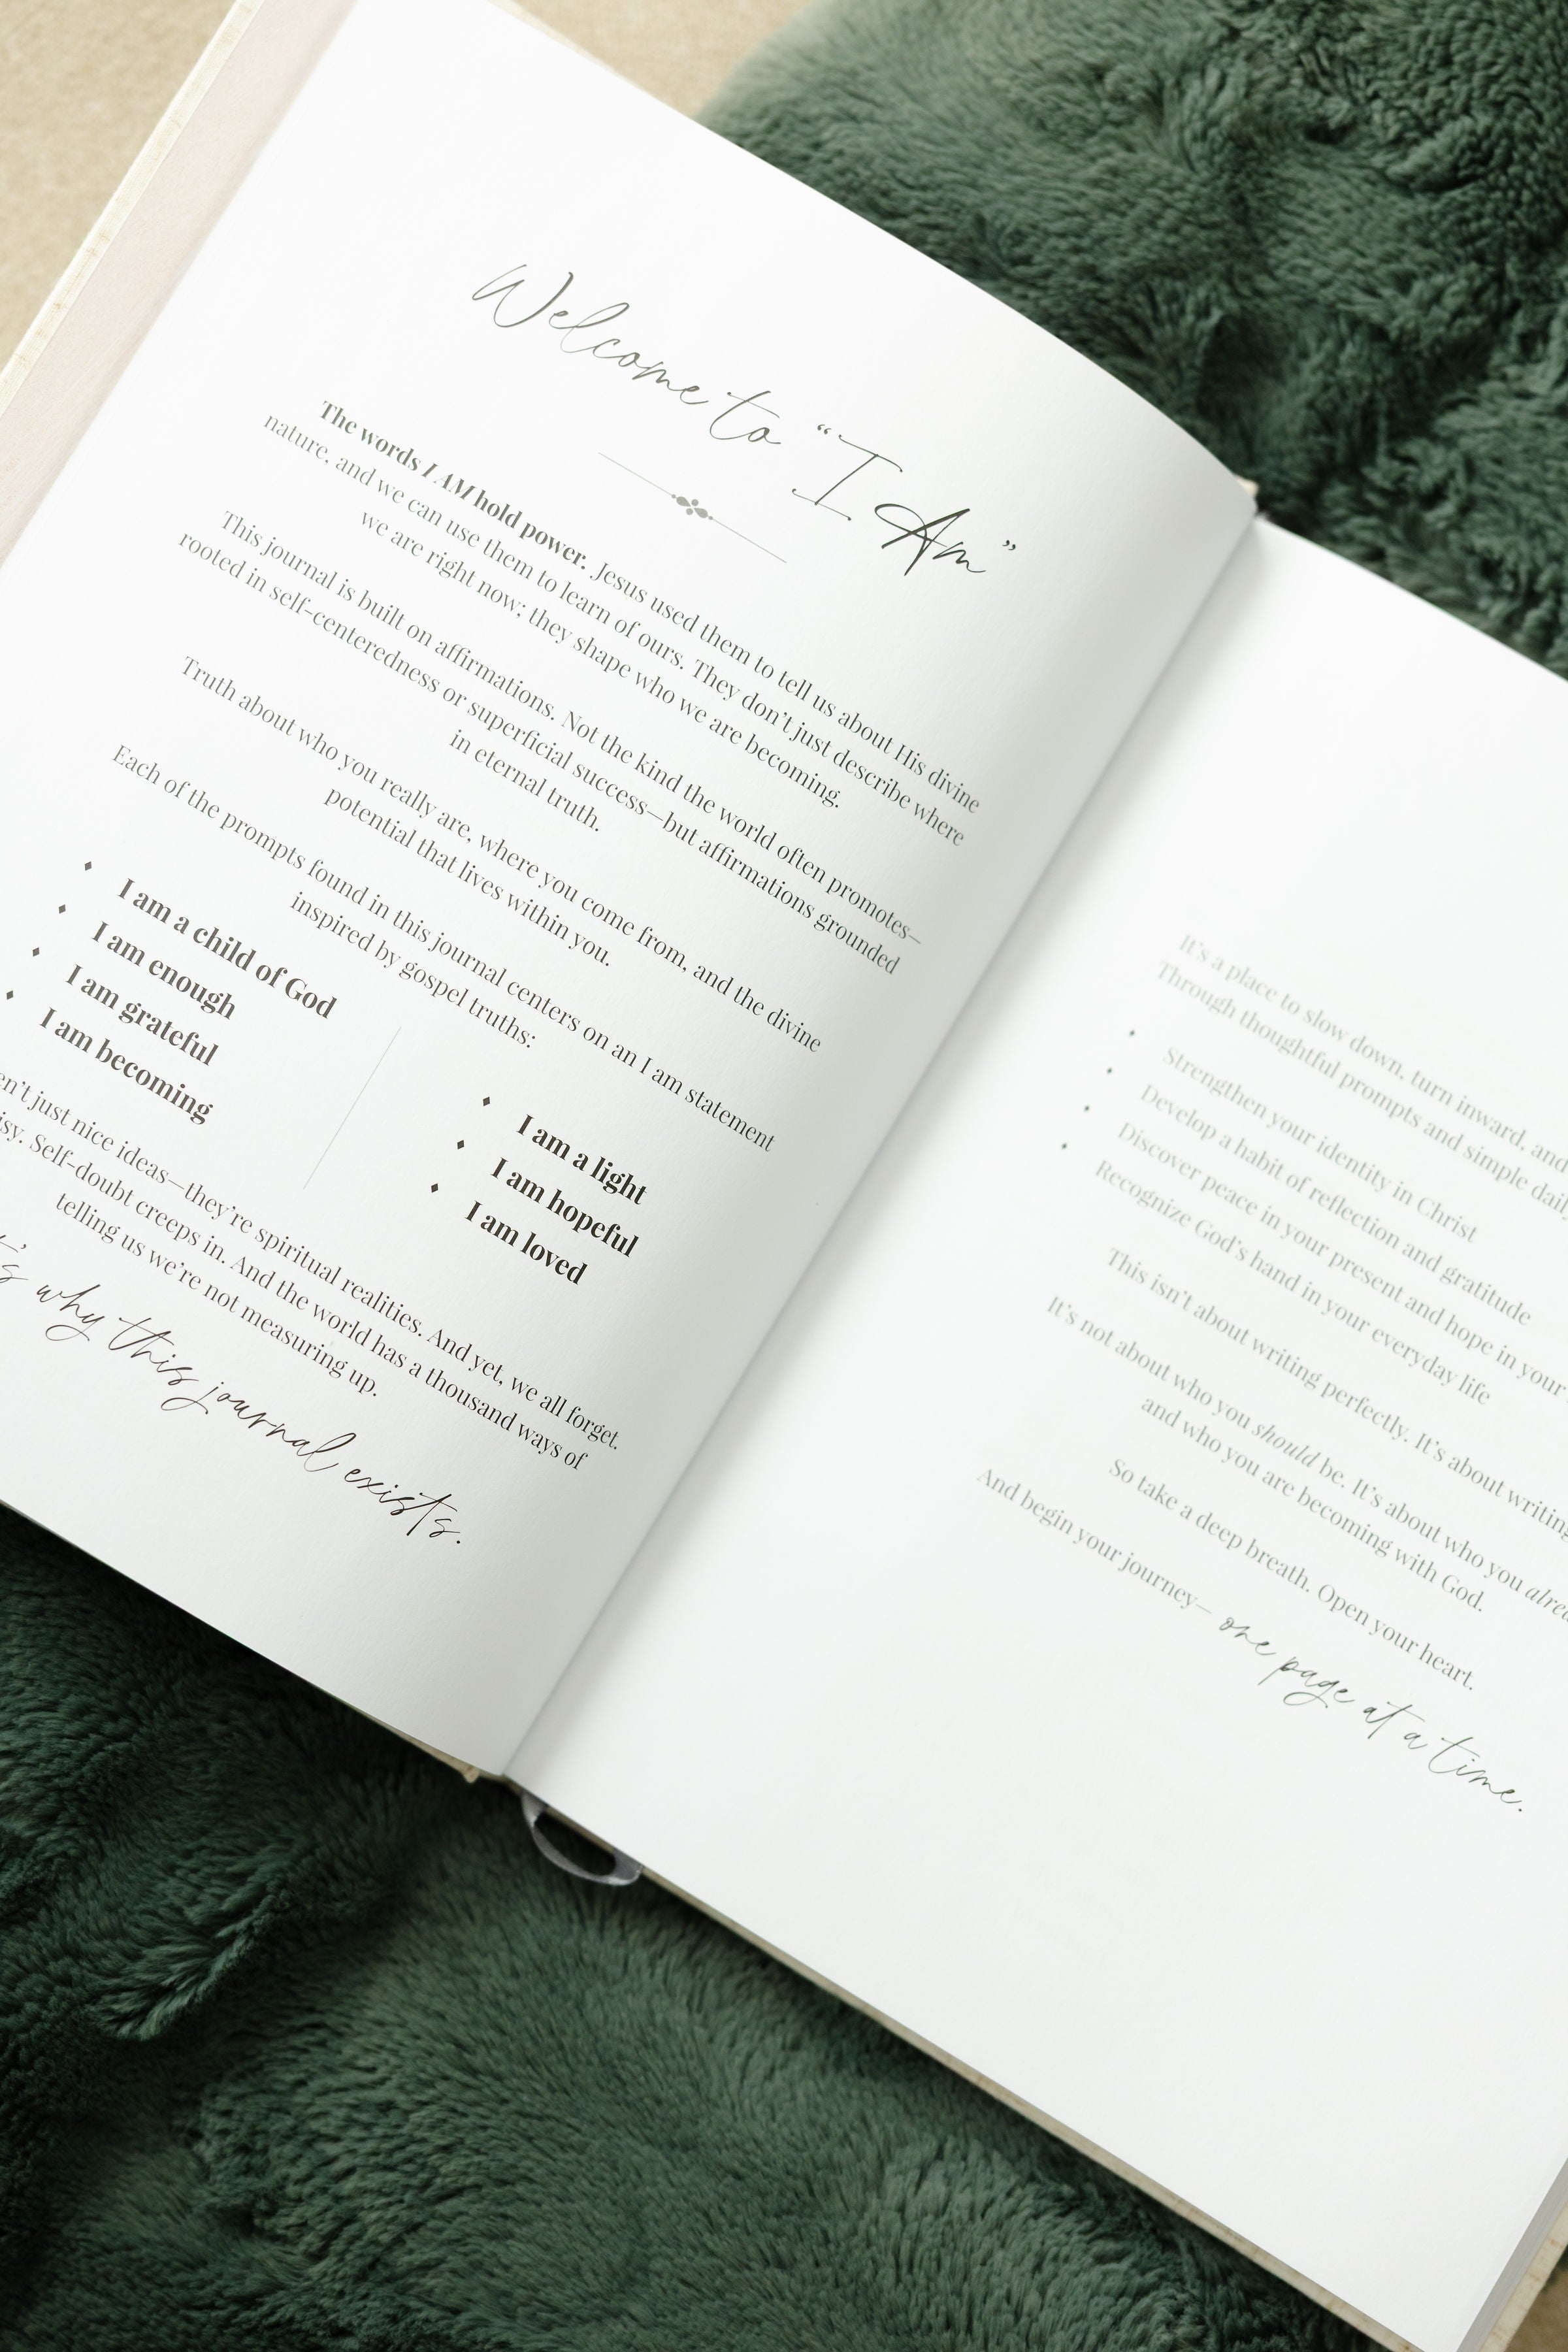 Welcome to “I Am”
The words I AM hold power. Jesus used them to tell us about His divine
nature, and we can use them to learn of ours. They don’t just describe where
we are right now; they shape who we are becoming.
This journal is built on affirmations. Not the kind the world often promotes—
rooted in self-centeredness or superficial success—but affirmations grounded
in eternal truth.
Truth about who you really are, where you come from, and the divine
potential that lives within you.
Each of the prompts found in this journal centers on an I am statement
inspired by gospel truths:
I am a child of God
I am enough
I am grateful
I am becoming
I am a light
I am hopeful
I am loved
just nice ideas—they’re spiritual realities. And yet, we all forget.
Self-doubt creeps in. And the world has a thousand ways of
telling us we’re not measuring up.
why this journal exists.
It’s a place to slow down, turn inward, and
Through thoughtful prompts and simple daily
Strengthen your identity in Christ
Develop a habit of reflection and gratitude
Discover peace in your present and hope in your
Recognize God’s hand in your everyday life
This isn’t about writing perfectly. It’s about writing
It’s not about who you should be. It’s about who you
and who you are becoming with God.
So take a deep breath. Open your heart.
And begin your journey— one page at a time.